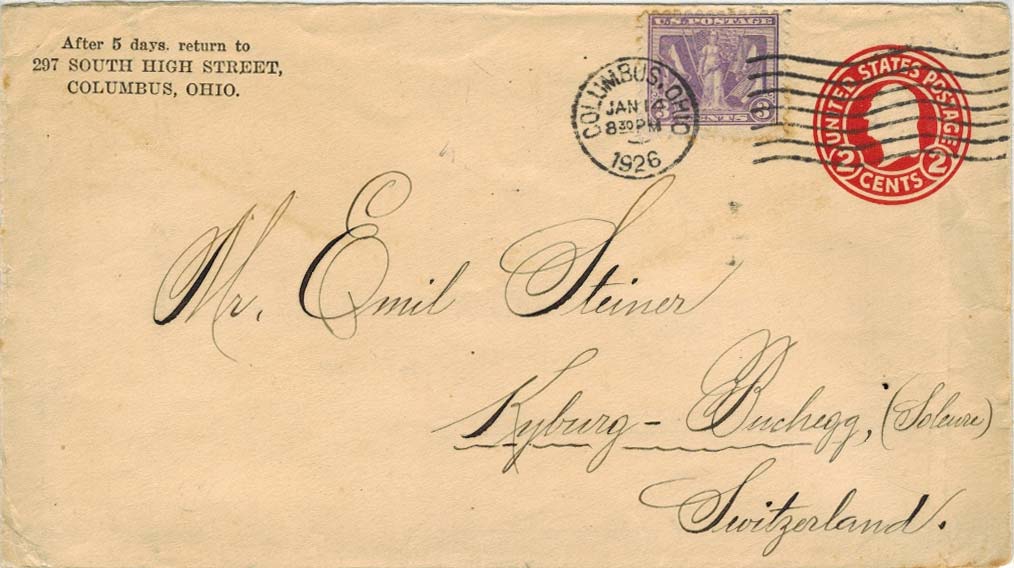 After 5 days, return to
297 SOUTH HIGH STREET,
COLUMBUS, OHIO.
U.S. POSTAGE
3 CENTS 3
COLUMBUS, OHIO
JAN 1
8 30 PM
1926
UNITED STATES POSTAGE
2 CENTS 2
Mr. Emil Steiner
Kyburg - Buchegg, (Soleure)
Switzerland.